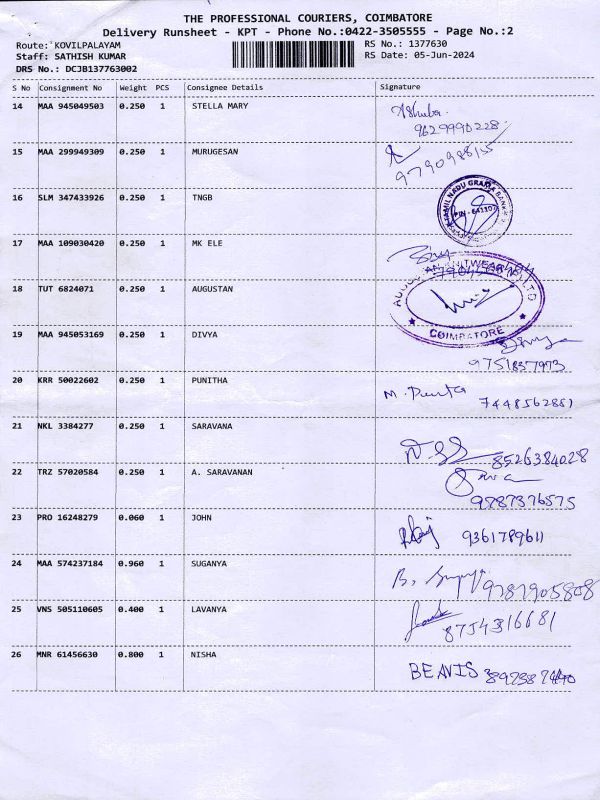 THE PROFESSIONAL COURIERS, COIMBATORE
Delivery Runsheet - KPT - Phone No.:0422-3505555 - Page No.:2
Route: KOVILPALAYAM RS No.: 1377630
Staff: SATHISH KUMAR RS Date: 05-Jun-2024
DRS No.: DCJB137763002
S No Consignment No Weight PCS Consignee Details Signature
14 MAA 945049503 0.250 1 STELLA MARY
9629990228
15 MAA 299949309 0.250 1 MURUGESAN
16 SLM 347433926 0.250 1 TNGB
TAMIL NADU GRAMA BANK
PIN - 641107
17 MAA 109030420 0.250 1 MK ELE
18 TUT 6824071 0.250 1 AUGUSTAN
COIMBATORE
19 MAA 945053169 0.250 1 DIVYA
Divya
9751837973
20 KRR 50022602 0.250 1 PUNITHA
7448562881
21 NKL 3384277 0.250 1 SARAVANA
8526384028
22 TRZ 57020584 0.250 1 A. SARAVANAN
9787376575
23 PRO 16248279 0.060 1 JOHN
9361789611
24 MAA 574237184 0.960 1 SUGANYA
9787905808
25 VNS 505110605 0.400 1 LAVANYA
8754316681
26 MNR 61456630 0.800 1 NISHA
BEAVIS